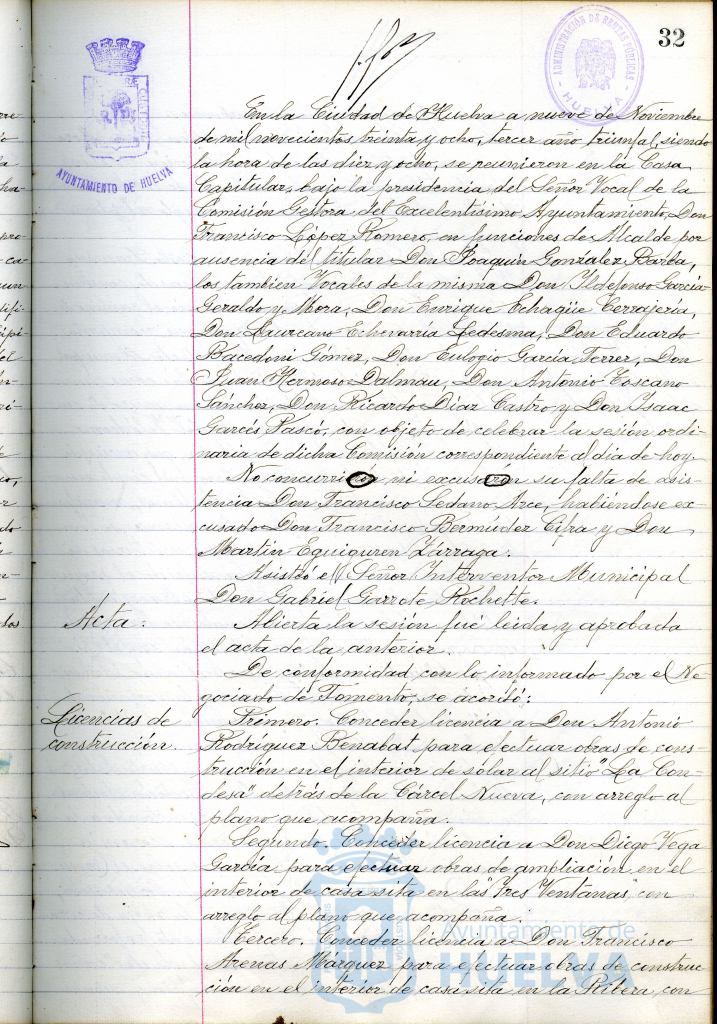 32
AYUNTAMIENTO DE HUELVA
ADMINISTRACIÓN DE RENTAS PÚBLICAS
HUELVA
En la Ciudad de Huelva a nueve de Noviembre
de mil novecientos treinta y ocho, tercer año triunfal, siendo
la hora de las diez y ocho, se reunieron en la Casa
Capitular, bajo la presidencia del Señor Vocal de la
Comisión Gestora del Excelentísimo Ayuntamiento, Don
Francisco López Romero, en funciones de Alcalde por
ausencia del titular Don Joaquín González Barba,
los tambien Vocales de la misma Don Ildefonso García
Geraldo y Mora, Don Enrique Echagüe Cerrajería,
Don Echevarría Ledesma, Don Eduardo
Bacedoni Gómez, Don Eulogio García Ferrer, Don
Juan Hermoso Dalmau, Don Antonio Toscano
Sánchez, Don Ricardo Díaz Castro y Don Isaac
Garcés Pascó, con objeto de celebrar la sesión ordi-
naria de dicha Comisión correspondiente al día de hoy.
No concurrió ni excusarón su falta de asis-
tencia Don Francisco Sedano Arce, habiéndose ex-
cusado Don Francisco Bermúdez Cifra y Don
Martin Eguiguren Zárraga.
Asistió el Señor Interventor Municipal
Don Gabriel Garrote Rochette.
Acta.
Abierta la sesión fué leida y aprobada
el acta de la anterior.
De conformidad con lo informado por el Ne-
gociado de Fomento, se acordó:
Licencias de
construcción.
Primero. Conceder licencia a Don Antonio
Rodríguez Benabat para efectuar obras de cons-
trucción en el interior de solar al sitio "La Con-
desa" detrás de la Cárcel Nueva, con arreglo al
plano que acompaña.
Segundo. Conceder licencia a Don Diego Vega
García para efectuar obras de ampliación en el
interior de casa sita en las "Tres Ventanas" con
arreglo al plano que acompaña.
Tercero. Conceder licencia a Don Francisco
Arenas Márquez para efectuar obras de construc-
ción en el interior de casa sita en la Ribera, con
Ayuntamiento de
HUELVA